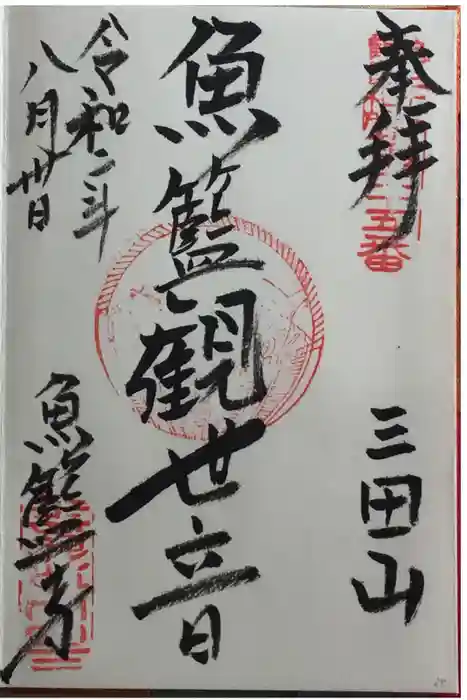 奉拝
三田山
魚籃観世音
令和二年
八月廿日
魚籃寺
五番